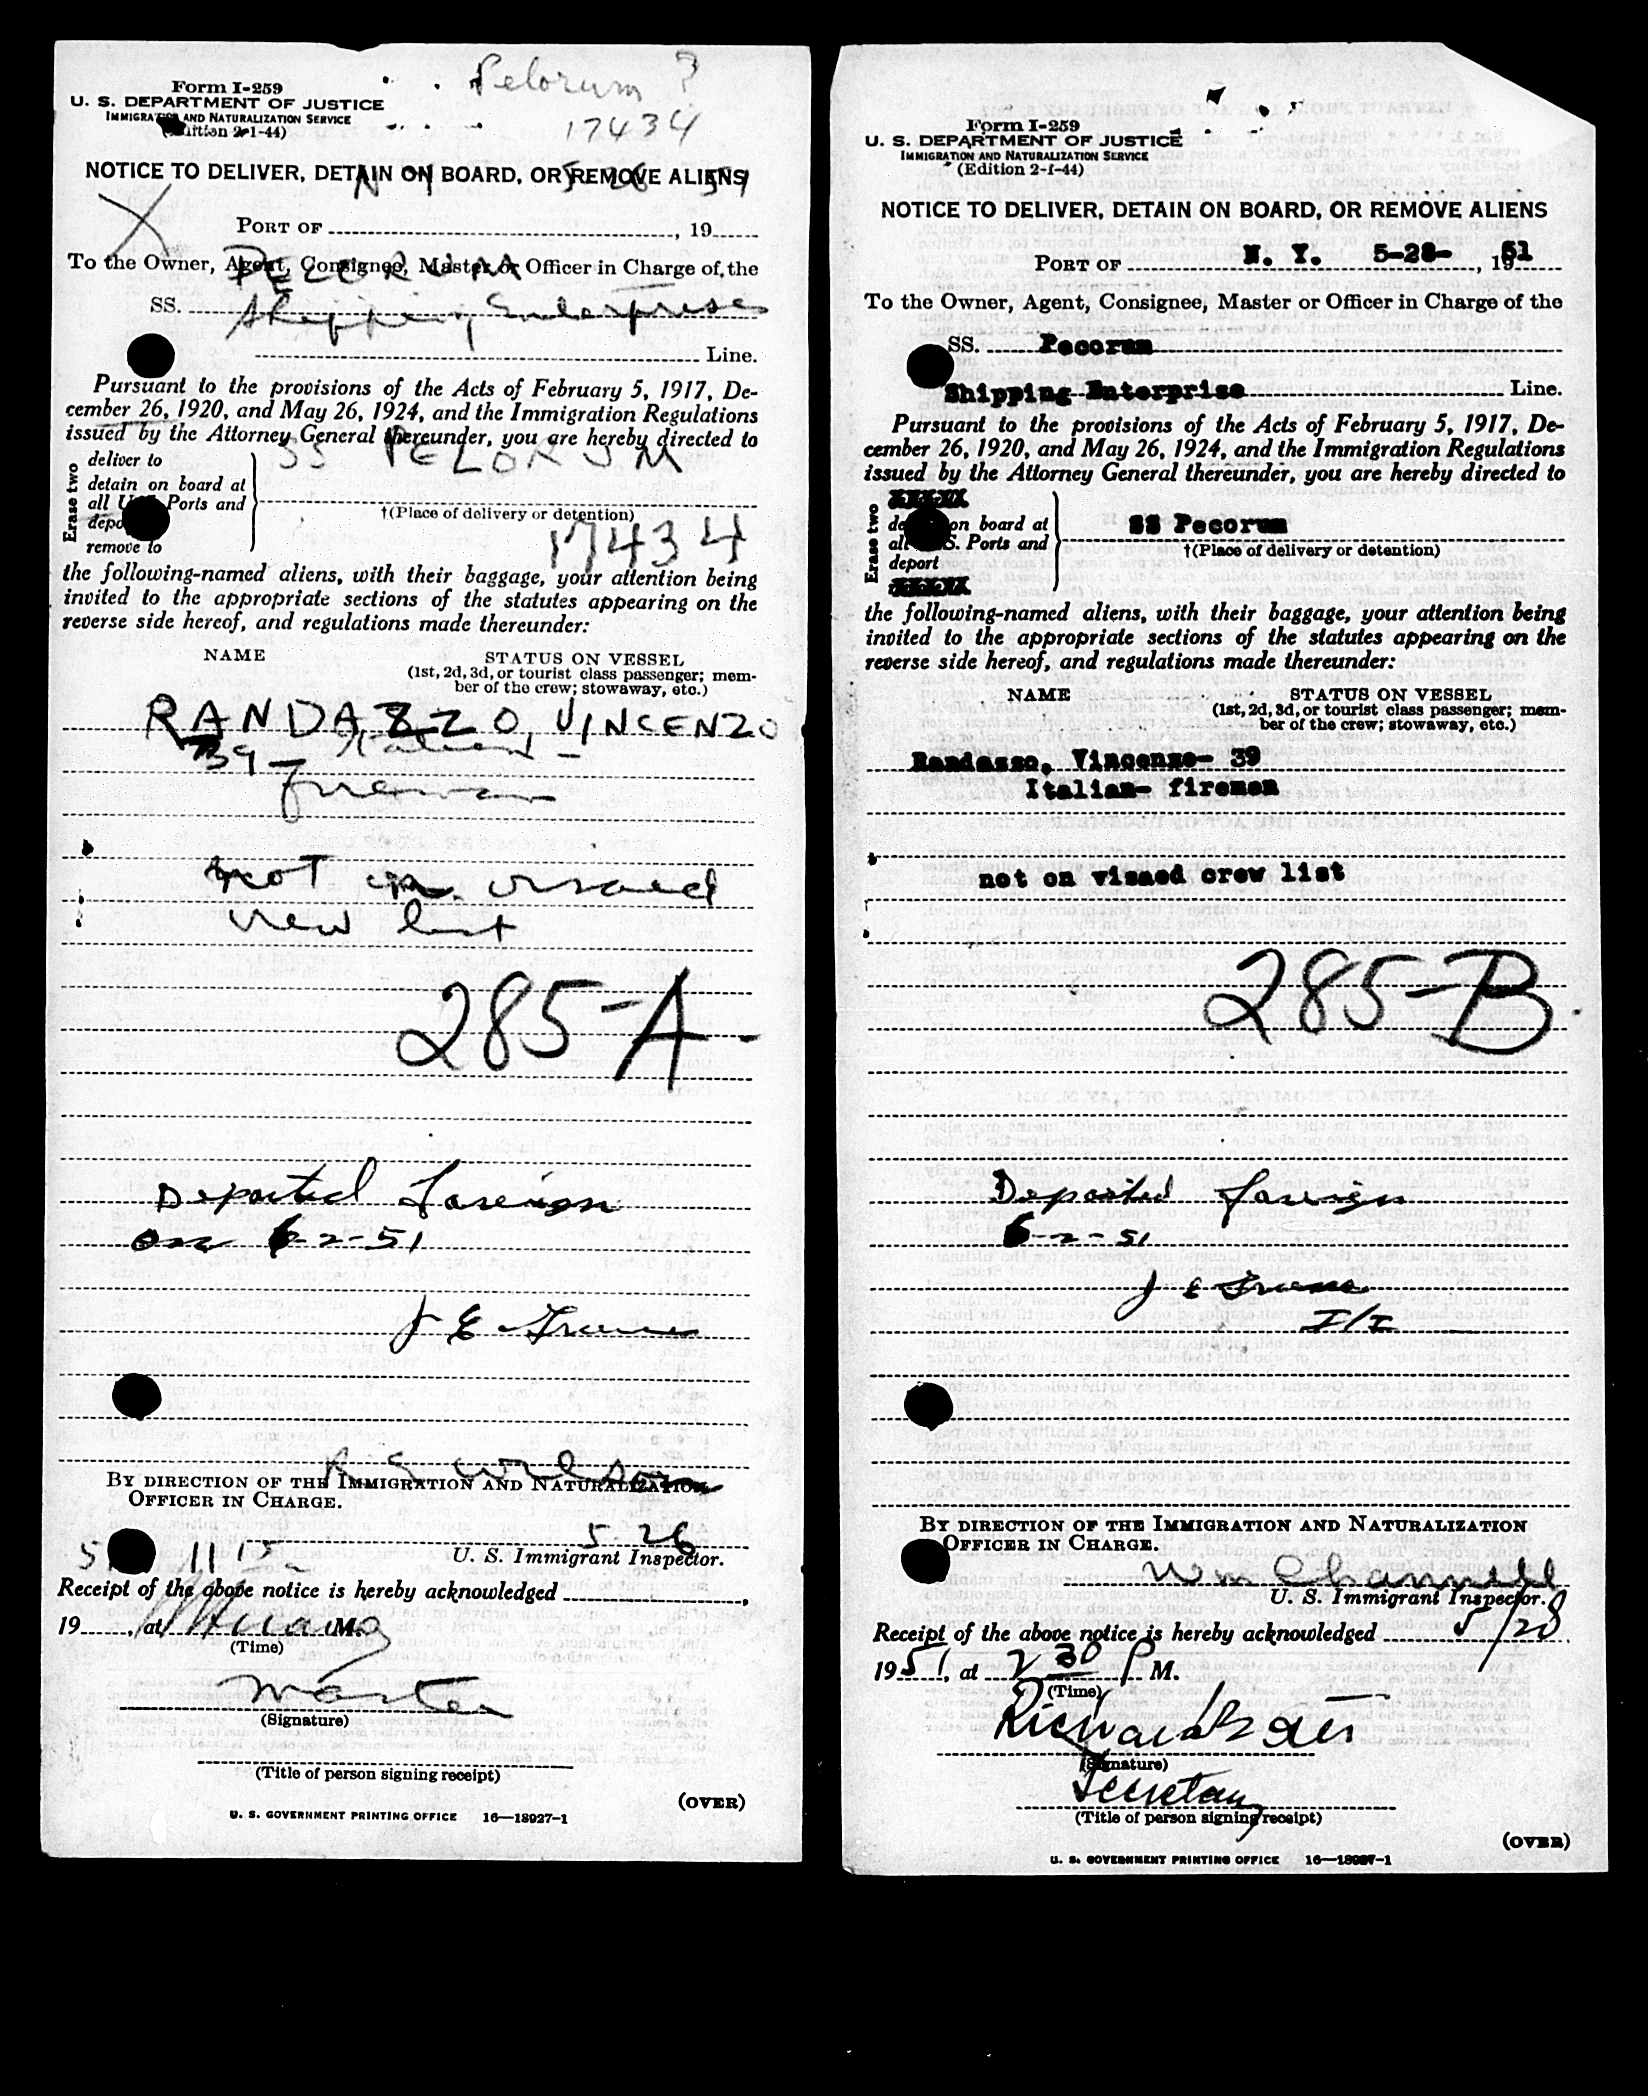 Pelorum ?
17434
Form I-259
U. S. DEPARTMENT OF JUSTICE
IMMIGRATION AND NATURALIZATION SERVICE
(Edition 2-1-44)
NOTICE TO DELIVER, DETAIN ON BOARD, OR REMOVE ALIENS
N Y 5 26 51
PORT OF , 19
To the Owner, Agent, Consignee, Master or Officer in Charge of the
PELORUM
SS.
Shipping Enterprises
Line.
Pursuant to the provisions of the Acts of February 5, 1917, De-
cember 26, 1920, and May 26, 1924, and the Immigration Regulations
issued by the Attorney General thereunder, you are hereby directed to
SS PELORUM
Erase two
deliver to
detain on board at
all U.S. Ports and
deport
remove to
†(Place of delivery or detention)
17434
the following-named aliens, with their baggage, your attention being
invited to the appropriate sections of the statutes appearing on the
reverse side hereof, and regulations made thereunder:
NAME STATUS ON VESSEL
(1st, 2d, 3d, or tourist class passenger; mem-
ber of the crew; stowaway, etc.)
RANDAZZO, VINCENZO
39 - Italian -
fireman
not on visaed
crew list
285-A
Deported foreign
on 6-2-51
J E
R S Wilson
BY DIRECTION OF THE IMMIGRATION AND NATURALIZATION
OFFICER IN CHARGE.
5 26
U. S. Immigrant Inspector.
Receipt of the above notice is hereby acknowledged ,
19 , at M.
(Time)
Master
(Signature)
(Title of person signing receipt)
(OVER)
U. S. GOVERNMENT PRINTING OFFICE 16—18927-1
Form I-259
U. S. DEPARTMENT OF JUSTICE
IMMIGRATION AND NATURALIZATION SERVICE
(Edition 2-1-44)
NOTICE TO DELIVER, DETAIN ON BOARD, OR REMOVE ALIENS
PORT OF N. Y. 5-28- , 1951
To the Owner, Agent, Consignee, Master or Officer in Charge of the
SS. Pecorum
Shipping Enterprise Line.
Pursuant to the provisions of the Acts of February 5, 1917, De-
cember 26, 1920, and May 26, 1924, and the Immigration Regulations
issued by the Attorney General thereunder, you are hereby directed to
Erase two
XXXXX
detain on board at
all U.S. Ports and
deport
XXXXX
SS Pecorum
†(Place of delivery or detention)
the following-named aliens, with their baggage, your attention being
invited to the appropriate sections of the statutes appearing on the
reverse side hereof, and regulations made thereunder:
NAME STATUS ON VESSEL
(1st, 2d, 3d, or tourist class passenger; mem-
ber of the crew; stowaway, etc.)
Randasso, Vincenzo- 39
Italian- firemen
not on visaed crew list
285-B
Deported foreign
6-2-51
J E
I/I
BY DIRECTION OF THE IMMIGRATION AND NATURALIZATION
OFFICER IN CHARGE.
Wm Channell
U. S. Immigrant Inspector.
Receipt of the above notice is hereby acknowledged 5/28
1951, at 2 30 P M.
(Time)
Richard
(Signature)
Secretary
(Title of person signing receipt)
(OVER)
U. S. GOVERNMENT PRINTING OFFICE 16—18927-1